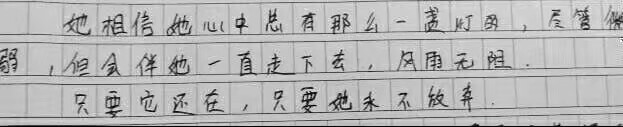 她相信她心中总有那么一盏灯的,尽管微
弱,但会伴她一直走下去,风雨无阻.
只要它还在,只要她永不放弃.